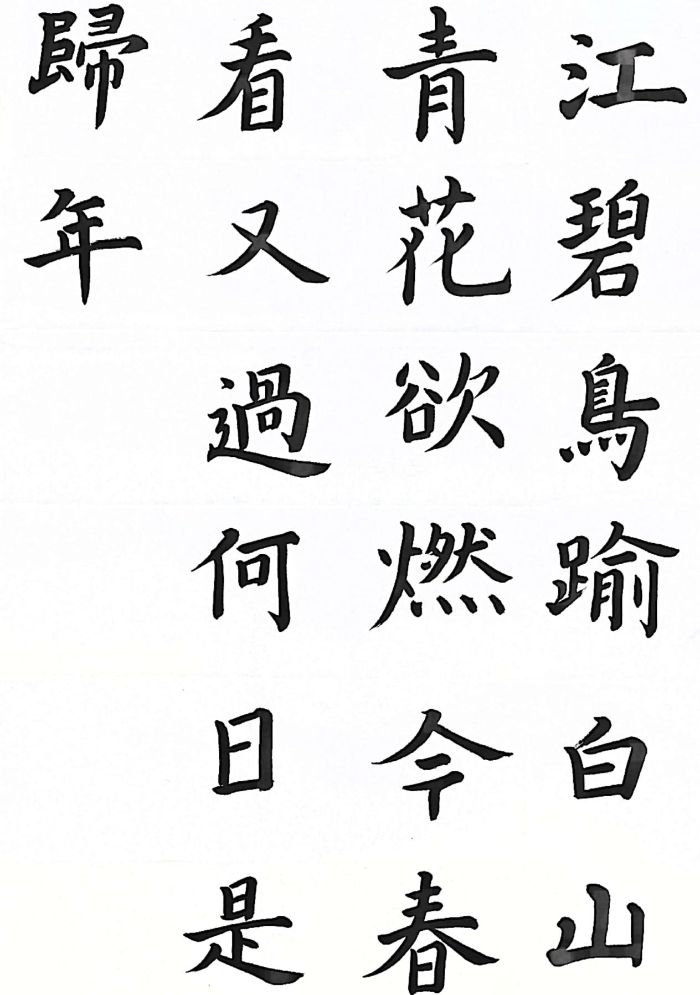 江碧鳥踰白山
青花欲燃今春
看又過何日是
歸年